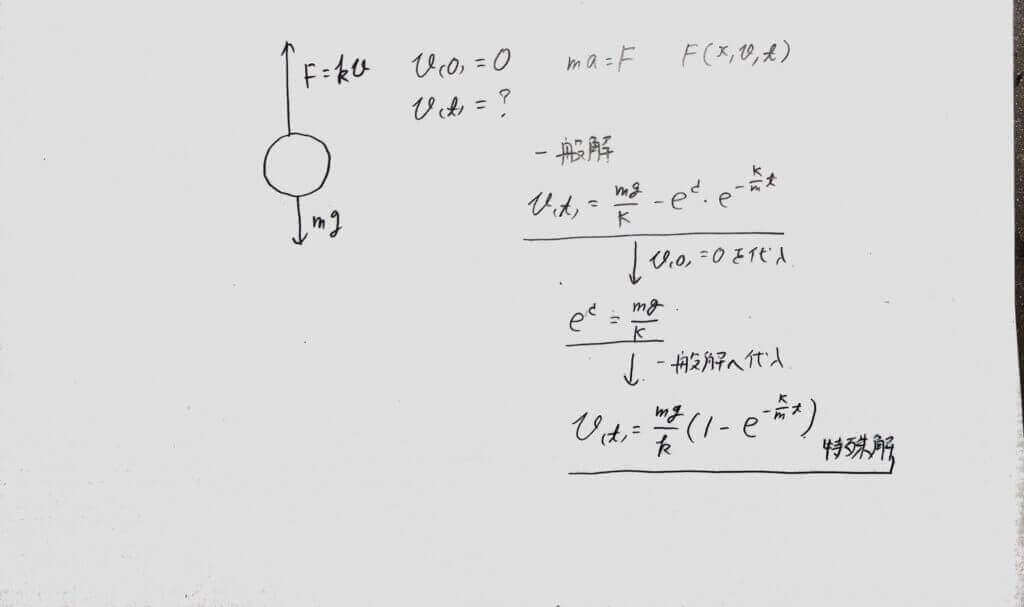 F=kv
mg
v(0)=0 ma=F F(x,v,t)
v(t)=?
一般解
v(t)=mg/k-e^d・e^-k/m t
v(0)=0を代入
e^d=mg/k
一般解へ代入
v(t)=mg/k(1-e^-k/m t)
特殊解